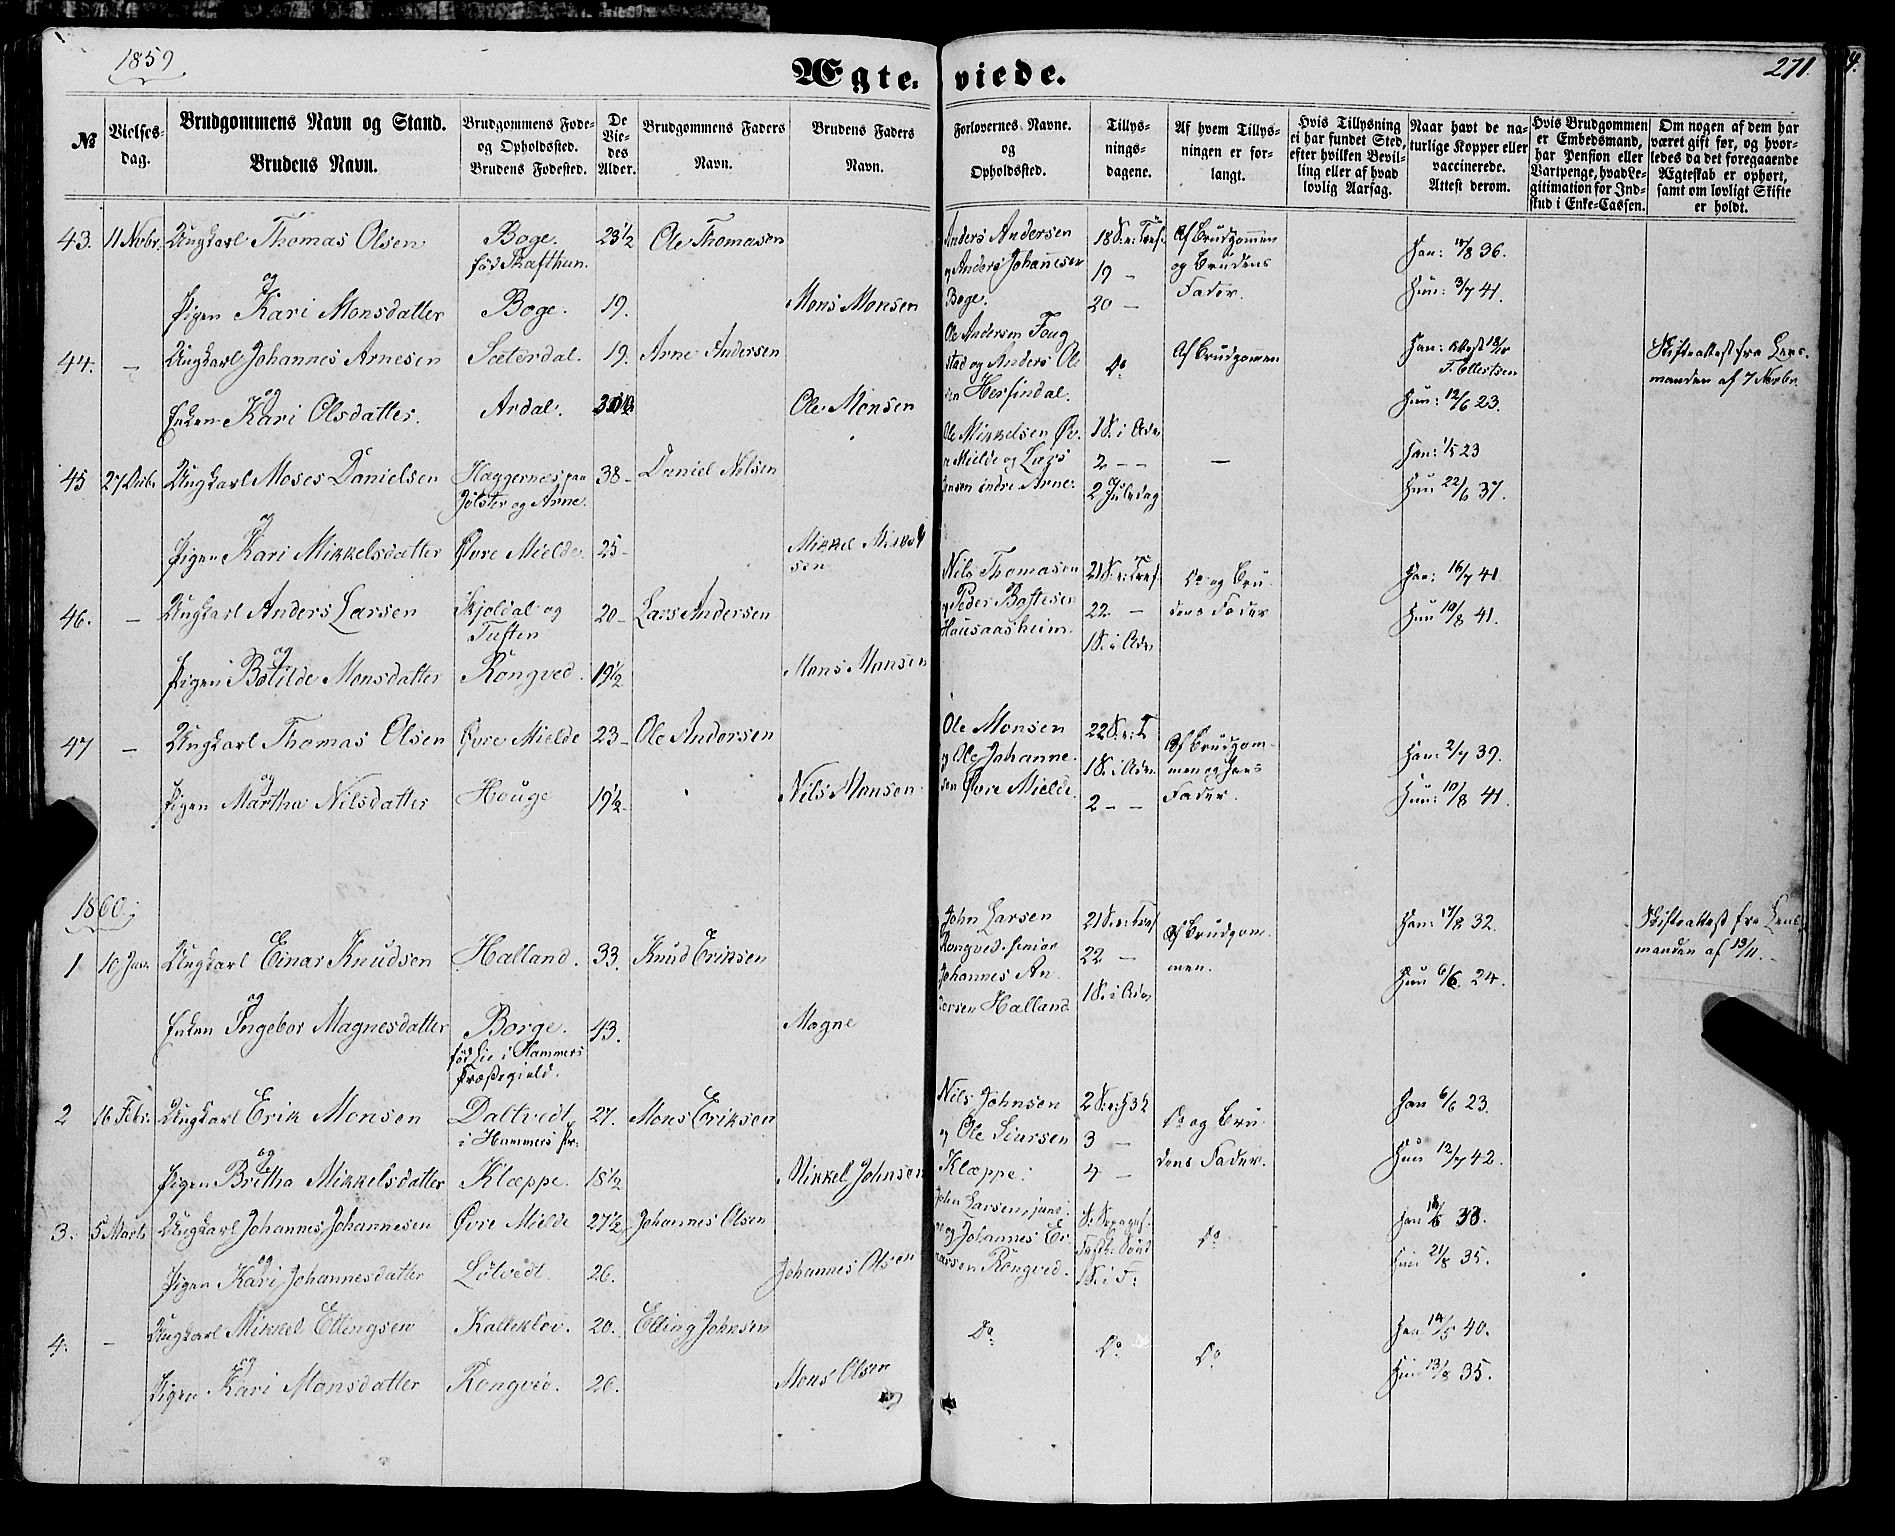 1859
Ægteviede.
271.
№
Vielses-
dag.
Brudgommens Navn og Stand.
Brudens Navn.
Brudgommens Føde-
og Opholdssted.
Brudens Fødested.
De
Vie-
des
Alder.
Brudgommens Faders
Navn.
Brudens Faders
Navn.
Forlovernes Navne.
og
Opholdssted.
Tillys-
nings-
dagene.
Af hvem Tillys-
ningen er for-
langt.
Hvis Tillysning
ei har fundet Sted,
efter hvilken Bevil-
ling eller af hvad
lovlig Aarsag.
Naar havt de na-
turlige Kopper eller
vaccinerede.
Attest derom.
Hvis Brudgommen
er Embedsmand,
har Pension eller
Vartpenge, hvad Le-
gitimation for Ind-
skud i Enke-Cassen.
Om nogen af dem har
været gift før, og hvor-
ledes da det foregaaende
Ægteskab er ophørt,
samt om lovligt Skifte
er holdt.
43. 11 Novbr. Ungkarl Thomas Olsen Boge. 23½ Ole Thomasen
født Skafthun.
og
Pigen Kari Monsdatter Boge. 19. Mons Monsen
Anders Andersen
og Anders Johannesen
Boge.
18 S. e: Tref.
19 —
20 —
Af Brudgommen
og Brudens
Fader.
Han: 18/8 36.
Hun: 3/7 41.
44. — Ungkarl Johannes Arnesen Sæterdal. 19. Arne Andersen
og
Enken Kari Olsdatter. Ardal. Ole Monsen
Ole Andersen Foug
stad og Anders Ol
sen Herfindal.
Do
Af Brudgomen
Han: Attest
T. Ellertsen
Hun: 12/6 23.
Skifteattest fra Lens-
manden af 7 Novbr.
45 27 Decbr Ungkarl Moses Danielsen Haggernæs paa 38 — Daniel Nilsen
Jølster og Arne.
og
Pigen Kari Mikkelsdatter Øvre Mielde. 25 — Mikkel Mikkel
sen
Ole Mikkelsen Øv.
re Mielde og Lars
Hansen indre Arne.
1 S. i Adv.
2 — —
2 Juledag
—
Han: 1/5 23
Hun 22/6 37.
46. — Ungkarl Anders Larsen Skjoldal og 20 — Lars Andersen
Tuften
og
Pigen Botilde Monsdatter Rongved. 19½ Mons Monsen
Nils Thomasen
og Peder Baftesen
Hausaasheim.
21 S. e: Tref.
22 —
1 S. i Adv
Do og Bru
dens Fader
Han: 16/7 41
Hun 10/8 41.
47 — Ungkarl Thomas Olsen Øvre Mielde 23 — Ole Andersen
og
Pigen Martha Nilsdatter Houge 19½ Nils Monsen
Ole Monsen
og Ole Johanne-
sen Øvre Mielde.
22 S. e: T
1 S. i Adv.
2 — —
Af Brudgom-
men og hans
Fader.
Han: 2/7 39.
Hun: 10/8 41.
1860.
1 10 Jan. Ungkarl Einar Knudsen Halland. 33. Knud Eriksen
og
Enken Ingebor Magnesdatter Borge. 43. Magne
født Lie i Hammers
Præstegield.
John Larsen
Rongved senior
Johannes An
dersen Halland
21 S. e: Tref
22 —
1 S. i Adv
Af Brudgom-
men.
Han: 17/8 32.
Hun 6/6. 24.
Skifteattest fra Lens-
manden af 13/11. —
2 16 Febr. Ungkarl Erik Monsen Daltvedt 27. Mons Eriksen
i Hammers Pr.
og
Pigen Bretha Mikkelsdatter Klæppe. 18½ Mikkel Johnsen
Nils Johnsen
og Ole Siursen
Klæppe.
2 S. e: H 3 K
3 —
4 —
Do og Bru
dens Fader.
Han 6/6 23.
Hun 12/7 42.
3. 5 Marts Ungkarl Johannes Johannesen Øvre Mielde 27½ Johannes Olsen
og
Pigen Kari Johannesdatter Løtvedt. 26. Johannes Olsen
John Larsen, juni-
or og Johannes Ei-
narsen Rongved.
S. Sexages.
Fastel. Sønd
1 S. i F.
Do
Han 33.
Hun 21/8 35.
4. — Ungkarl Mikkel Ellingsen Kalleklov. 20. Elling Johnsen
og
Pigen Kari Monsdatter Rongved. 26. Mons Olsen
Do
Do
Do
Han 14/5 40.
Hun 13/8 35.